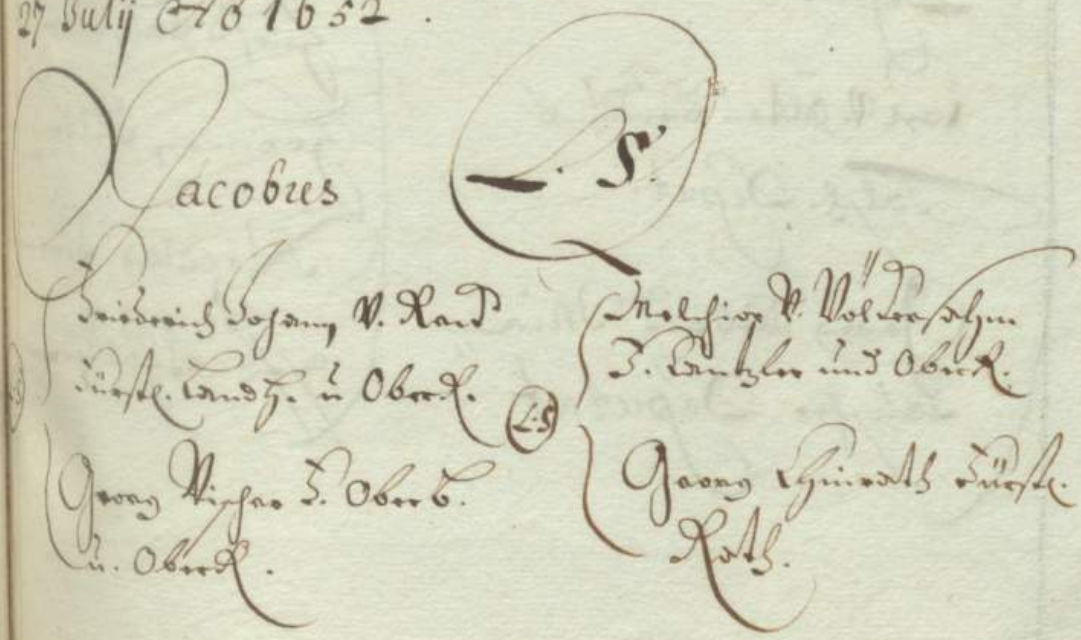 27 July Ao 1652.
Jacobus
L. S.
Friederich Johann V. Rand
Fürstl. Landh. u Oberr.
Georg Vischer F. Oberb.
u. Oberr.
L.S
Melchior V. Völckersahm
F. Cantzler und Oberr.
Georg Fürstl.
Rath.